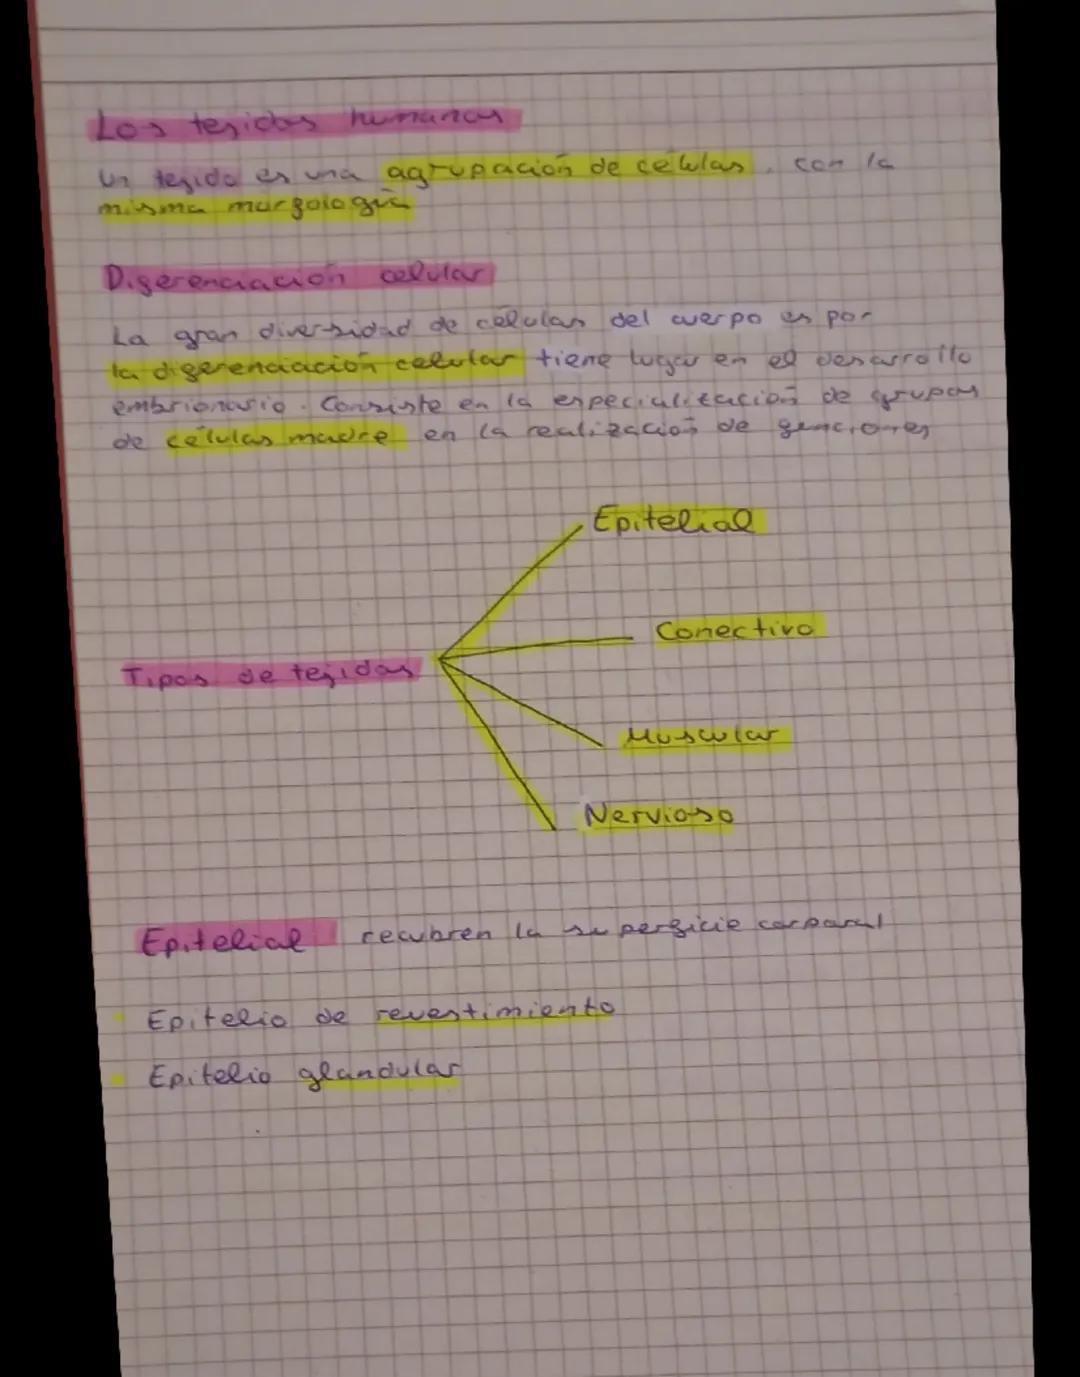 Los tejidos humanos
Un tejido es una agrupación de células, con la
misma morfologia
Diferenciación celular
La gran diversidad de células del cuerpo es por
la diferenciación celular tiene lugar en el desarrollo
embrionario. Consiste en la especialitación de grupos
de células madre en la realización de funciones
Epitelial
Conectivo
Tipos de tejidos
Muscular
Nervioso
Epitelial recubren la superficie corporal
Epitelio de revestimiento
Epitelio glandular